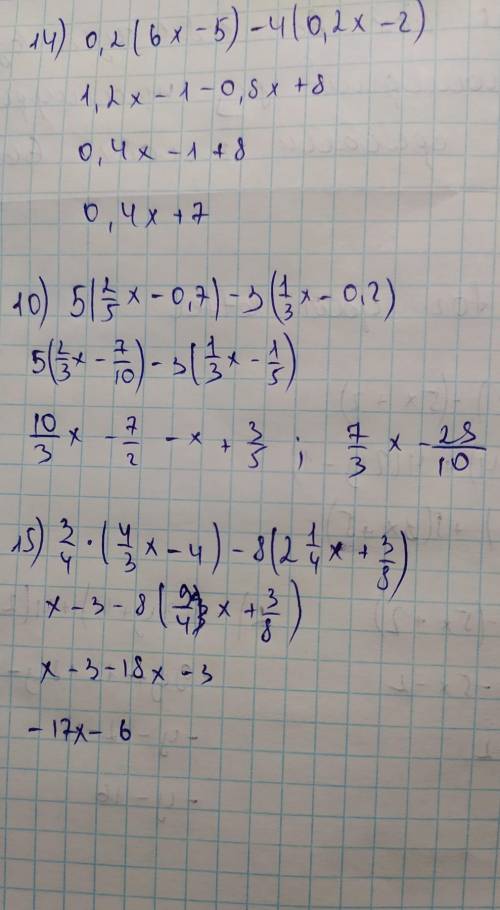 14) 0,2(6x-5)-4(0,2x-2)
1,2x-1-0,8x+8
0,4x-1+8
0,4x+7
10) 5(2/5x-0,7)-3(1/3x-0,2)
5(2/3x-7/10)-3(1/3x-1/5)
10/3x-7/2-x+3/5; 7/3x-29/10
15) 3/4·(4/3x-4)-8(2 1/4x+3/8)
x-3-8(9/4x+3/8)
x-3-18x-3
-17x-6